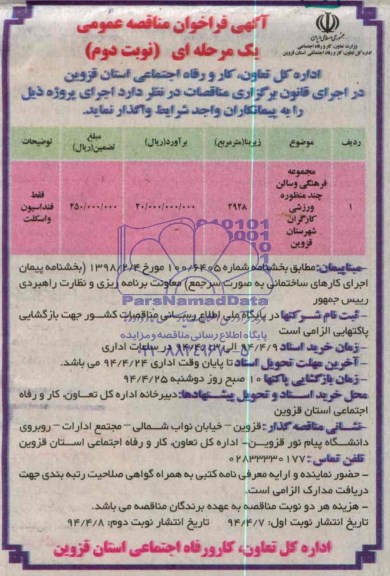 جمهوری اسلامی ایران
وزارت تعاون، کار و رفاه اجتماعی
اداره کل تعاون، کار و رفاه اجتماعی استان قزوین
آگهی فراخوان مناقصه عمومی
یک مرحله ای (نوبت دوم)
اداره کل تعاون، کار و رفاه اجتماعی استان قزوین
در اجرای قانون برگزاری مناقصات در نظر دارد اجرای پروژه ذیل
را به پیمانکاران واجد شرایط واگذار نماید.
ردیف موضوع زیربنا(مترمربع) برآورد(ریال) مبلغ تضمین(ریال) توضیحات
۱ مجموعه فرهنگی وسالن چند منظوره ورزشی کارگران شهرستان قزوین ۲۹۲۸ ۲۰/۰۰۰/۰۰۰/۰۰۰ ۲۵۰/۰۰۰/۰۰۰ فقط فنداسیون واسکلت
ParsNamadData
پایگاه اطلاع رسانی مناقصه ومزایده
-مبناپیمان: مطابق بخشنامه شماره ۱۰۰/۶۴۰۵ مورخ ۱۳۹۸/۲/۴ (بخشنامه پیمان
اجرای کارهای ساختمانی به صورت سرجمع) معاونت برنامه ریزی و نظارت راهبردی
رییس جمهور
- ثبت نام شرکتها در پایگاه ملی اطلاع رسانی مناقصات کشور جهت بازگشایی
پاکتهایی الزامی است
- زمان خرید اسناد ۹۴/۴/۹ الی در ساعات اداری
- آخرین مهلت تحویل اسناد تا پایان وقت اداری ۹۴/۴/۲۴ می باشد.
- زمان بازگشایی پاکتها ۱۰ صبح روز دوشنبه ۹۴/۴/۲۵
محل خرید اسناد و تحویل پیشنهادها: دبیرخانه اداره کل تعاون، کار و رفاه
اجتماعی استان قزوین
- نشانی مناقصه گذار: قزوین - خیابان نواب شمالی - مجتمع ادارات - روبروی
دانشگاه پیام نور قزوین- اداره کل تعاون، کار و رفاه اجتماعی استان قزوین
تلفن تماس: ۰۲۸۳۳۳۳۰۱۷۷
- حضور نماینده و ارایه معرفی نامه کتبی به همراه گواهی صلاحیت رتبه بندی جهت
دریافت مدارک الزامی است.
- هزینه هر دو نوبت مناقصه به عهده برندگان مناقصه می باشد.
تاریخ انتشار نوبت اول: ۹۴/۴/۷ تاریخ انتشار نوبت دوم: ۹۴/۴/۸
اداره کل تعاون، کارورفاه اجتماعی استان قزوین